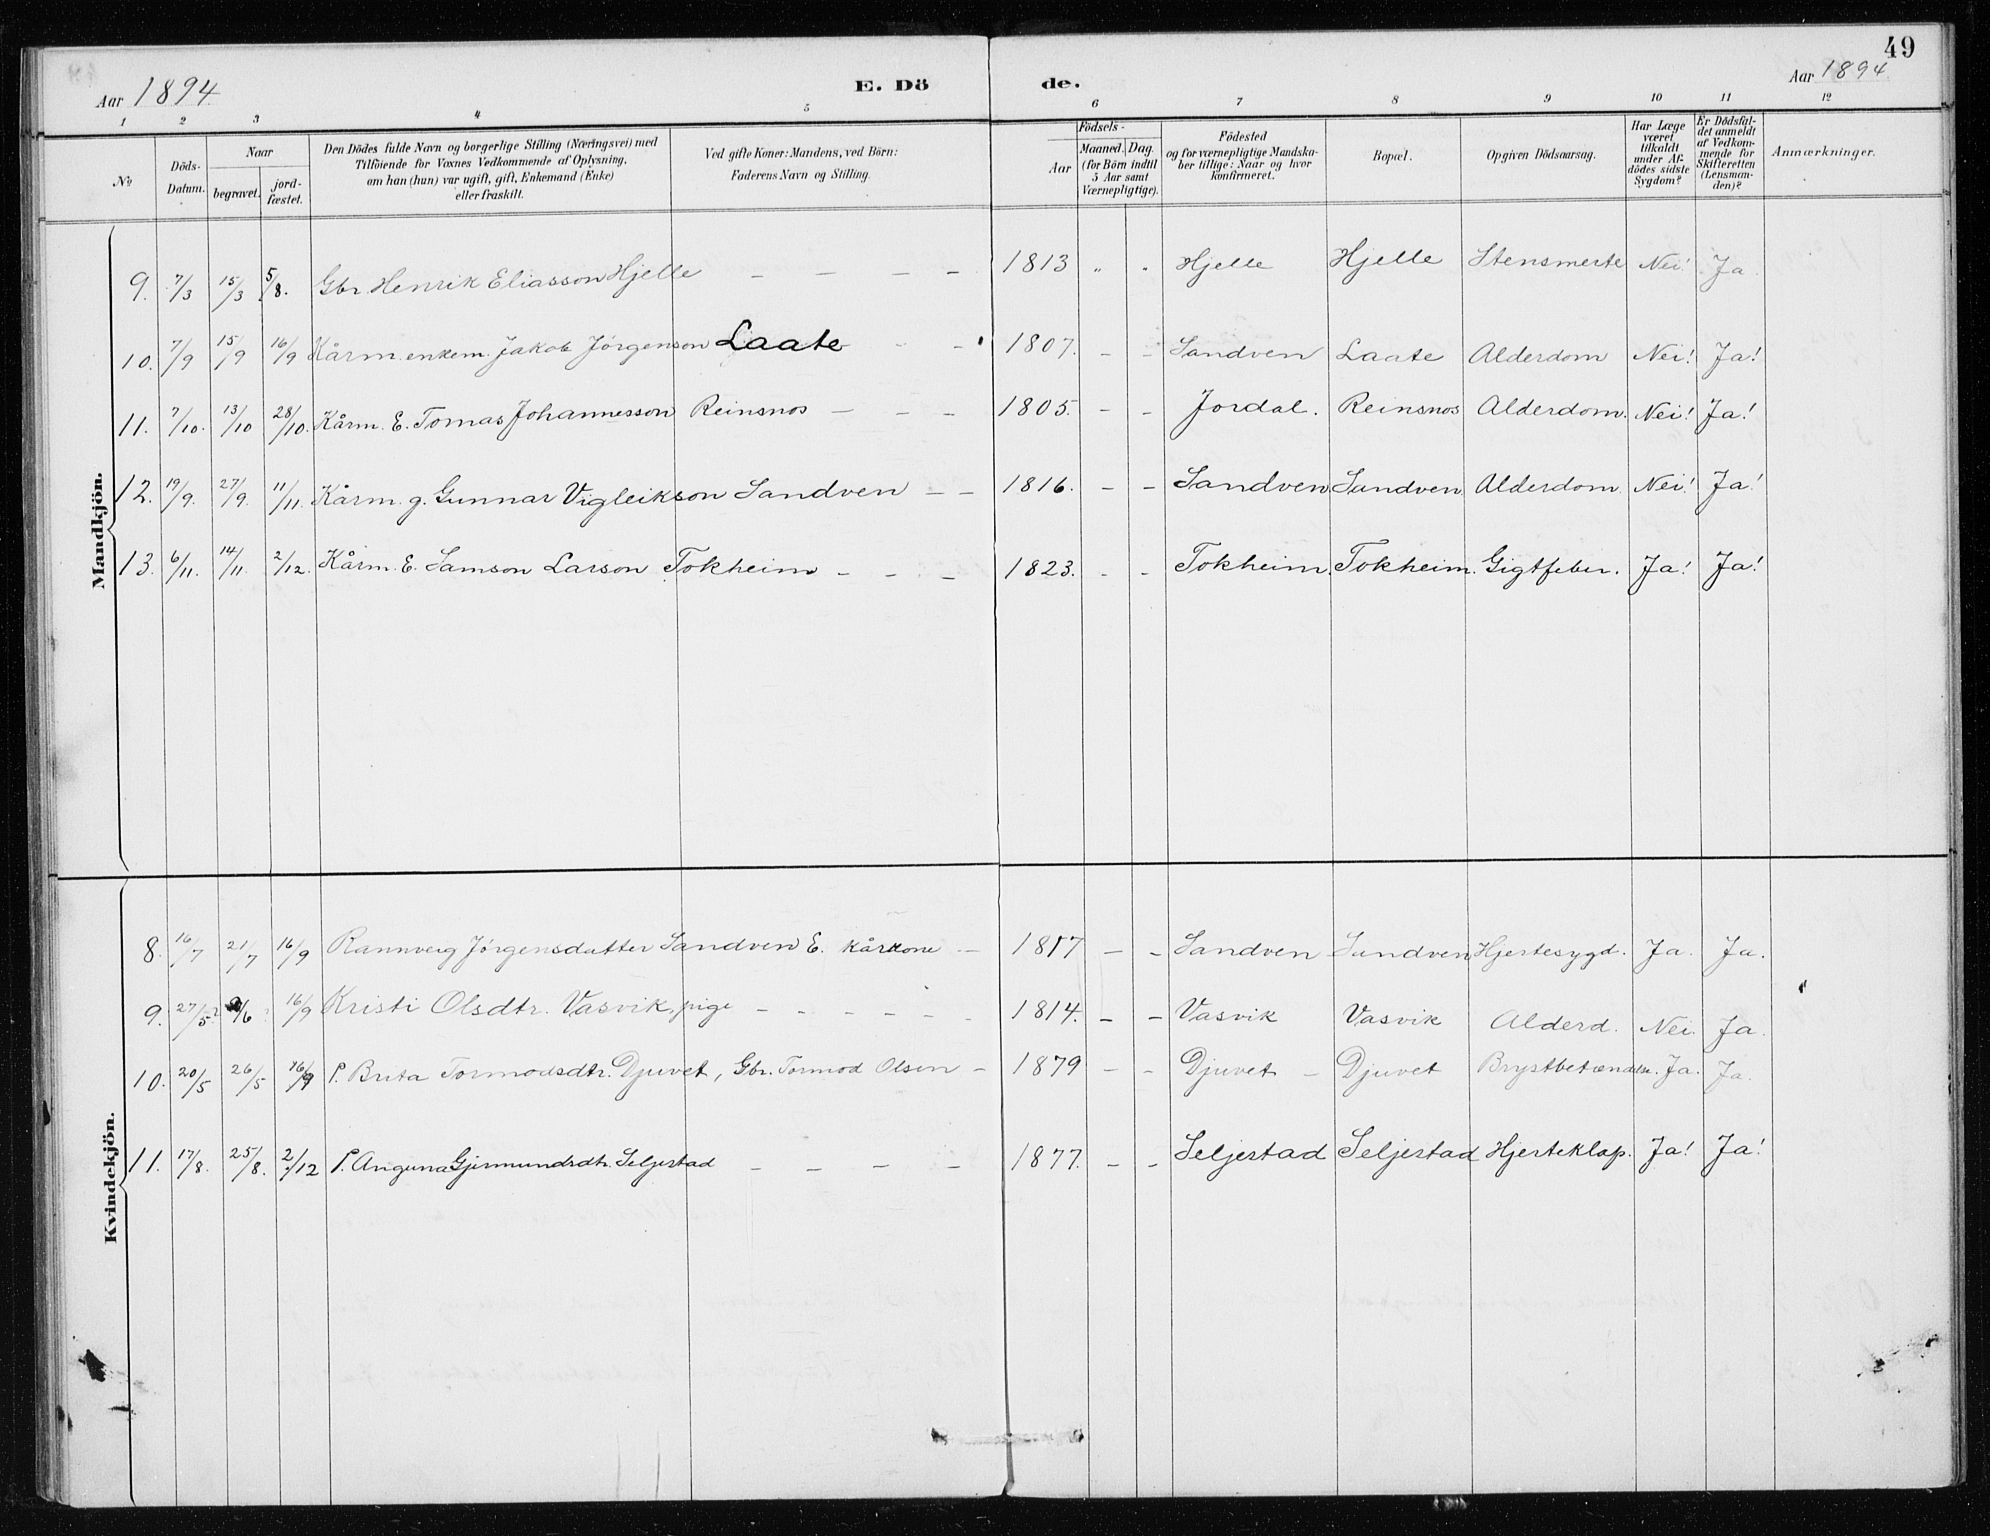 49
Aar 1894 E. Dö de. Aar 1894
1 2 3 4 5 6 7 8 9 10 11 12
No
Döds-Datum.
Naar
begravet.
jord-fæstet.
Den Dödes fulde Navn og borgerlige Stilling (Næringsvei) med
Tilföiende for Voxnes Vedkommende af Oplysning,
om han (hun) var ugift, gift, Enkemand (Enke)
eller fraskilt.
Ved gifte Koner: Mandens, ved Börn:
Faderens Navn og Stilling.
Födsels-
Aar
Maaned. Dag.
(for Börn indtil
5 Aar samt
Værnepligtige).
Födested
og for værnepligtige Mandska-
ber tillige: Naar og hvor
konfirmeret.
Bopæl.
Opgiven Dödsaarsag.
Har Læge
været
tilkaldt
under Af-
dödes sidste
Sygdom?
Er Dödsfal-
det anmeldt
af Vedkom-
mende for
Skifteretten
(Lensman-
den)?
Anmærkninger.
Mandkjön.
9. 7/3 15/3 5/8. Gbr. Henrik Eliasson Hjelle – – – – 1813 " " Hjelle Hjelle Stensmerte Nei! Ja
10. 7/9 15/9 16/9 Kårm. enkem. Jakob Jörgenson Laate - - 1807. – – Sandven Laate Alderdom Nei! Ja!
11. 7/10. 13/10 28/10. Kårm. E. Tomas Johannesson Reinsnos – – – 1805. – – Jordal. Reinsnos Alderdom. Nei! Ja!
12. 19/9. 27/9. 11/11. Kårm. g. Gunnar Vigleikson Sandven – – 1816. – – Sandven Sandven Alderdom Nei! Ja!
13. 6/11. 14/11. 2/12. Kårm. E. Samson Larson Tokheim – – – 1823. – – Tokheim. Tokheim. Gigtfeber. Ja! Ja!
Kvindekjön.
8. 16/7 21/7 16/9 Rannveig Jörgensdatter Sandven E. kårkone – 1817 – – Sandven Sandven Hjertesygd. Ja. Ja.
9. 27/5? /6 ? 16/9 Kristi Olsdtr. Vasvik, pige – – – – – – 1814. – – Vasvik Vasvik Alderd. Nei. Ja.
10. 20/5 26/5 16/9 P. Brita Tormodsdtr. Djuvet, Gbr. Tormod Olsen – 1879 – – Djuvet – Djuvet Brystbetændelse. Ja. Ja.
11. 17/8. 25/8. 2/12 P. Anguna Gjermundsdtr. Seljestad – – – – 1877. – – Seljestad Seljestad Hjerteklap. Ja! Ja!